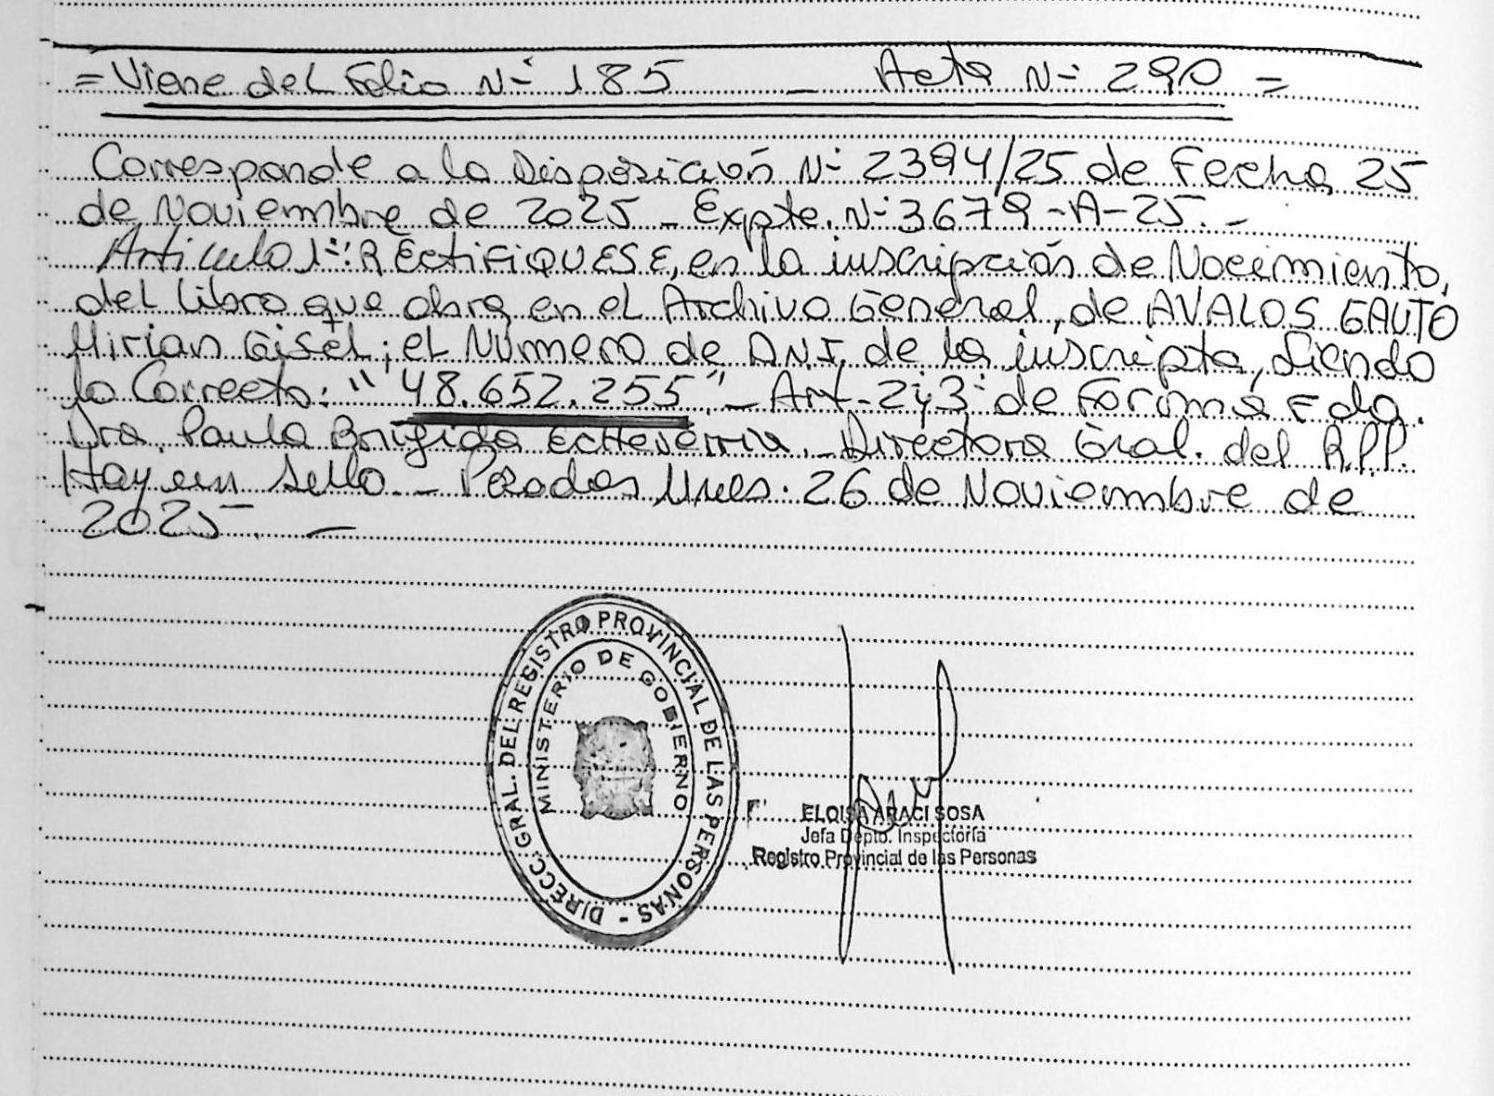 = Viene del Folio N° 185 - Acta N° 290 =
Corresponde a la Disposición N° 2394/25 de Fecha 25
de Noviembre de 2025 - Expte. N° 3679-A-25. -
Articulo 1°: RECTIFIQUESE, en la inscripción de Nacimiento,
del Libro que obra en el Archivo General, de AVALOS GAUTO
Mirian Gisel; el Número de D.N.I. de la inscripta, siendo
lo Correcto: "48.652.255" - Art. 2 y 3° de Forma Fdo.
Dra. Paula Brigida Echeverria. - Directora Gral. del R.P.P.
Hay un Sello. - Posadas Mnes. 26 de Noviembre de
2025. -
DIRECC. GRAL. DEL REGISTRO PROVINCIAL DE LAS PERSONAS -
MINISTERIO DE GOBIERNO
ELOISA ARACI SOSA
Jefa Depto. Inspectoría
Registro Provincial de las Personas